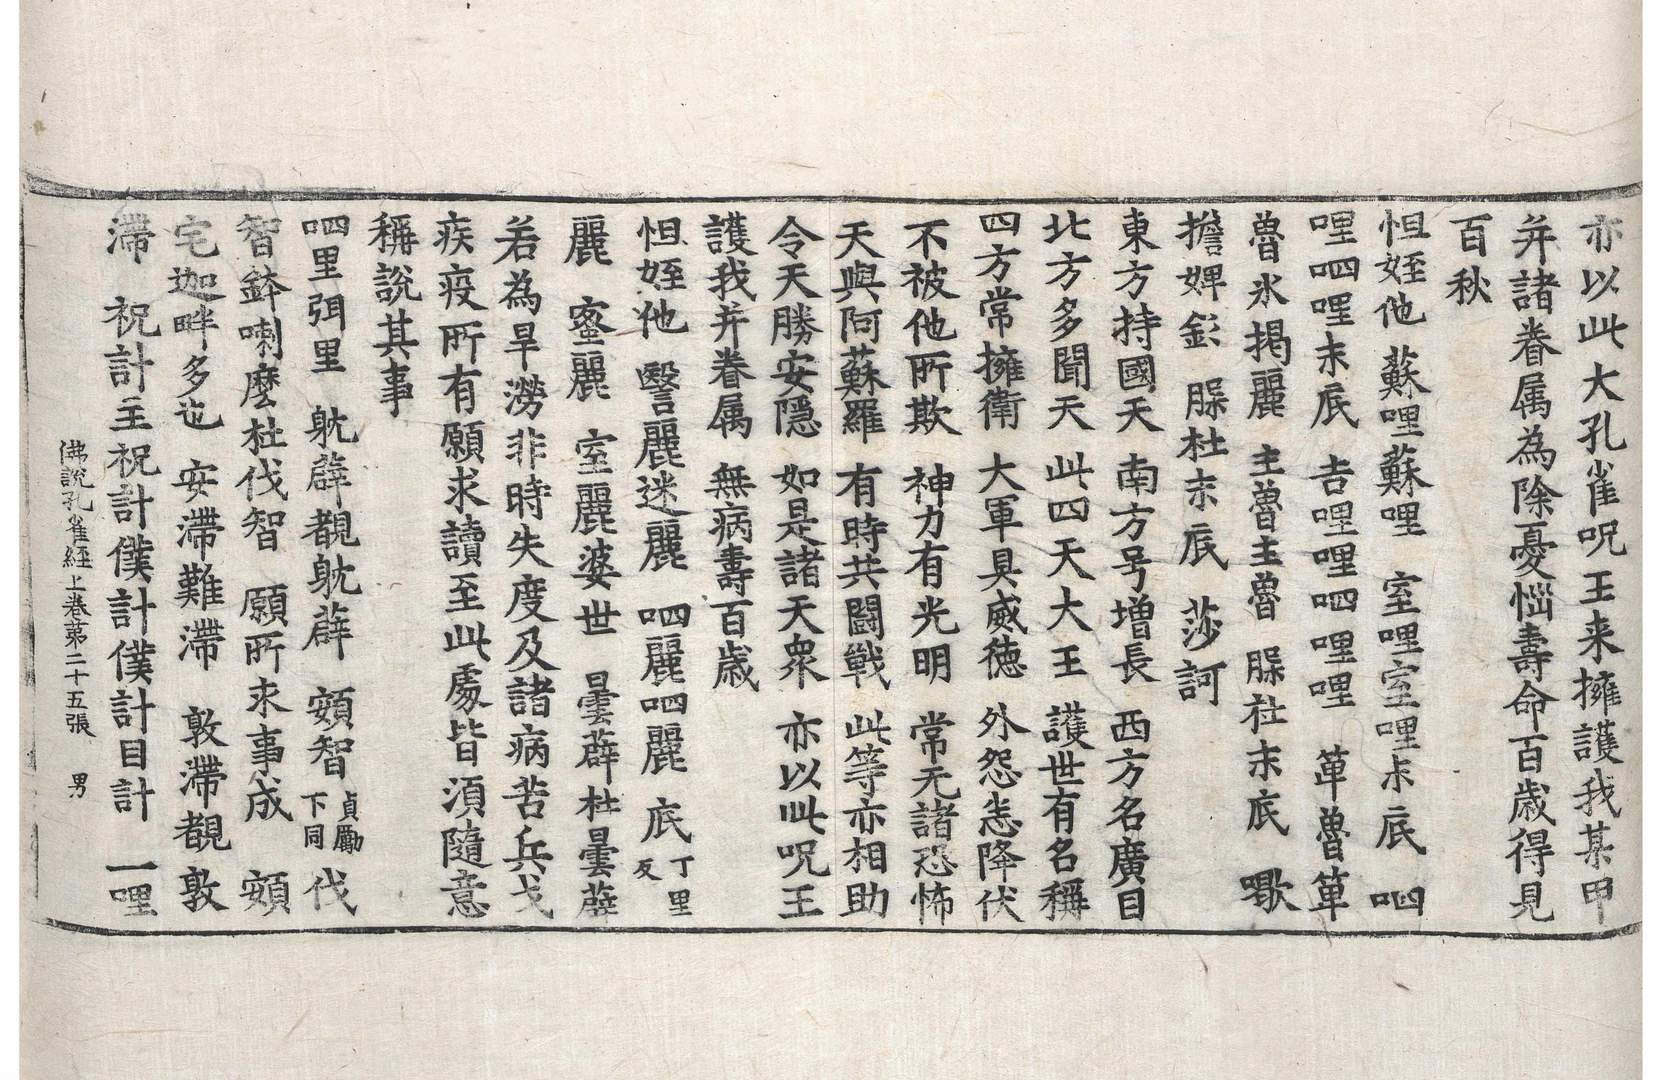 亦以此大孔雀呪王来擁護我某甲
并諸眷属為除憂惱壽命百歳得見
百秋
怛姪他 蘇哩蘇哩 室哩室哩末底 呬
哩呬哩末底 𠮷哩哩呬哩哩 箄魯箄
魯氷揭麗 主魯主魯 脲社末底 嚟
擔婢𨥉 脲杜末底 莎訶
東方持國天 南方号增長 西方名廣目
北方多聞天 此四天大王 護世有名稱
四方常擁衛 大軍具威徳 外怨恙降伏
不被他所欺 神力有光明 常无諸恐怖
天與阿蘇羅 有時共闘戦 此等亦相助
令天勝安隱 如是諸天衆 亦以此呪王
護我并眷属 無病壽百歳
怛姪他 謦麗迷麗 呬麗呬麗 底丁里反
麗 蜜麗 室麗婆世 曇薜杜曇薜
若為旱澇非時失度及諸病苦兵戈
疾疫所有願求讀至此處皆湏隨意
稱說其事
呬里弭里 躭薜覩躭薜 頞智貞勵下同 伐
智鉢喇麽杜伐智 願所求事成 頞
宅迦畔多也 安滯難滯 敦滯覩敦
滯 祝計主祝計僕計僕計目計 一哩
佛說孔雀經上卷第二十五張 男